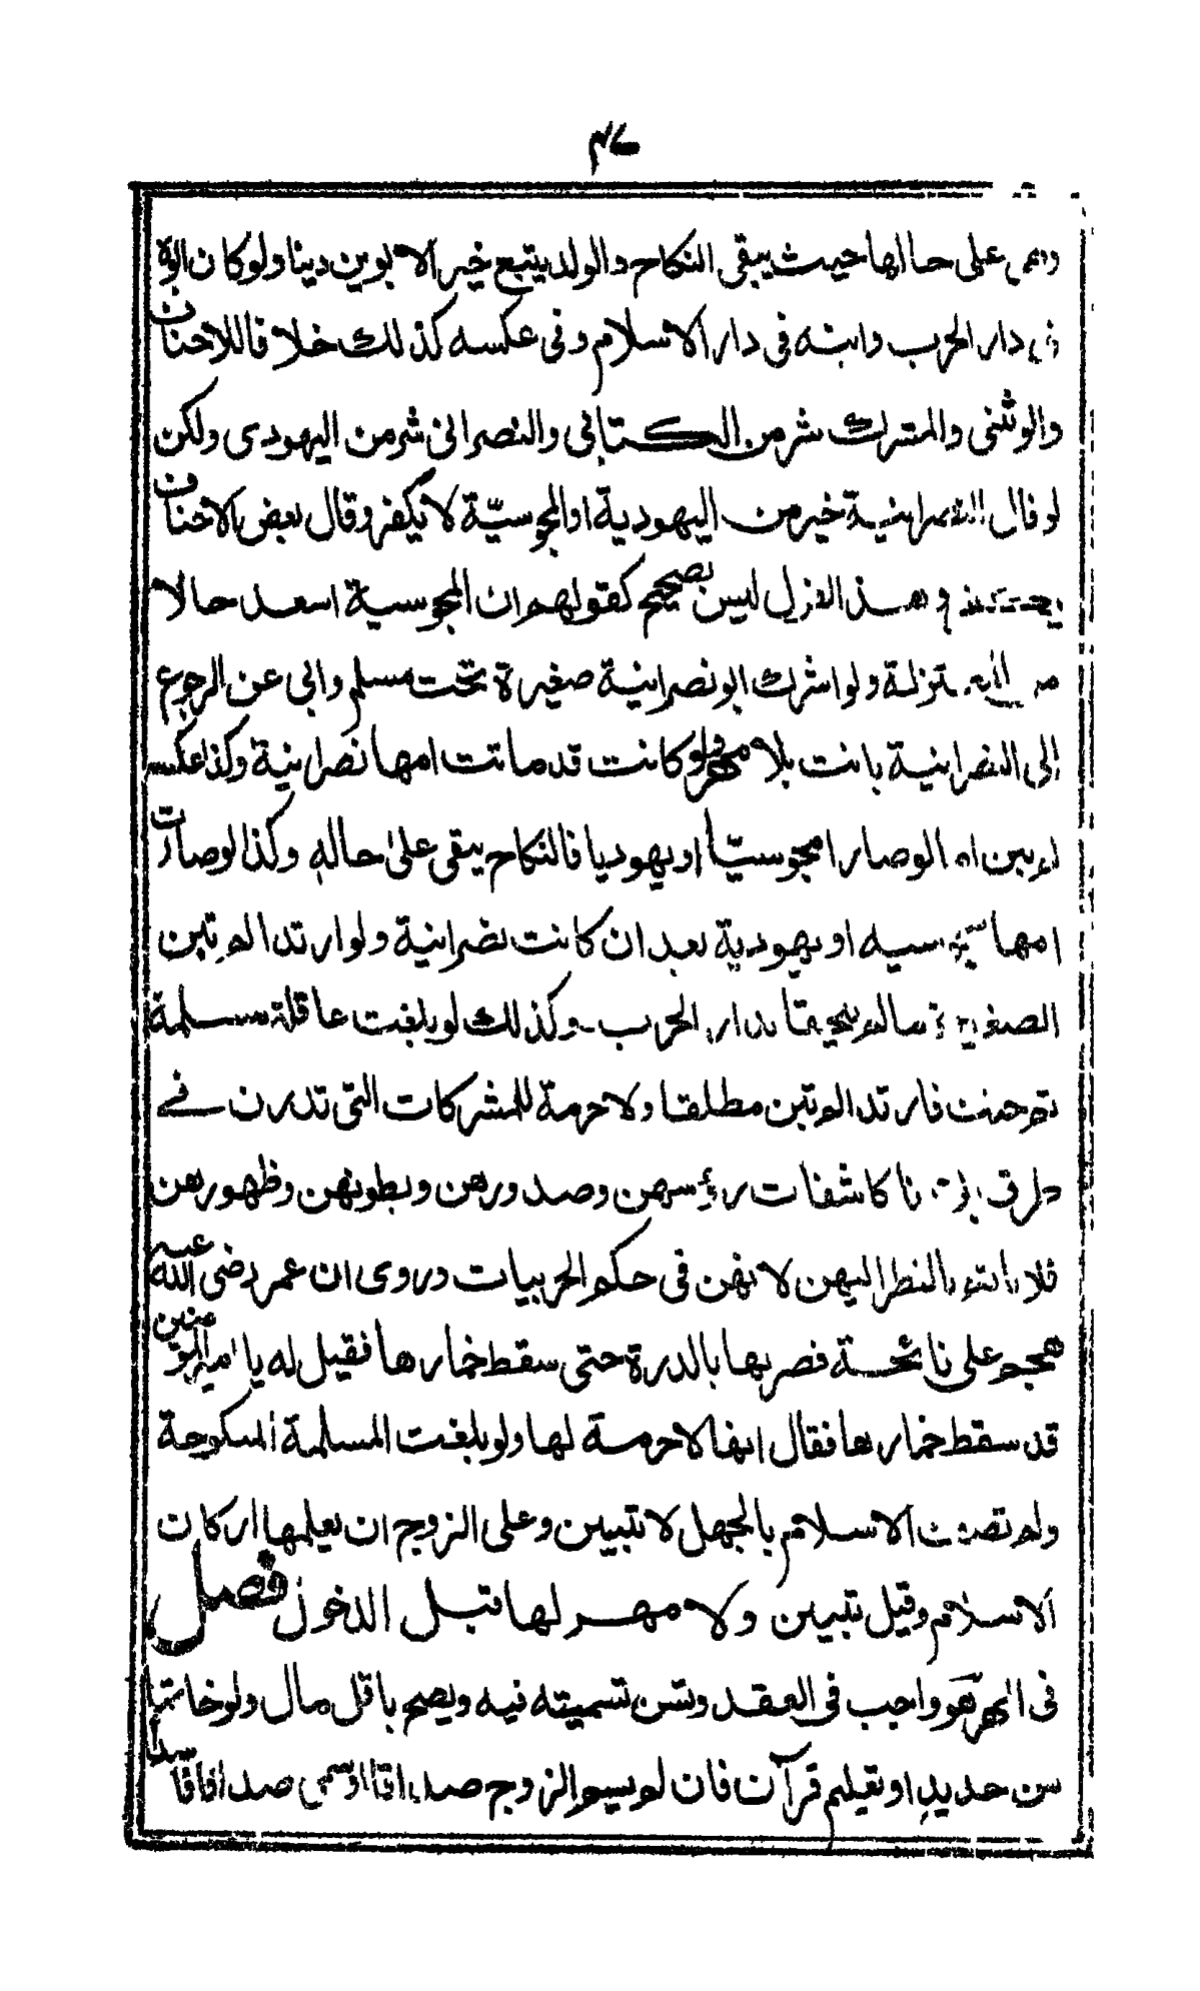 ٤٧
وهى على حالها حيث يبقى النكاح والولد يتبع خير الابوين دينا ولو كان ابوه
فى دار الحرب وابنه فى دار الاسلام وفى عكسه كذلك خلافا للاحناف
والوثنى والمشرك شر من الكتابى والنصرانى شر من اليهودى ولكن
لو قال النصرانية خير من اليهودية او المجوسيّة لا يكفر وقال بعض الاحناف
وهذا القول ليس بصحيح كقولهم ان المجوسية اسعد حالا
من المعتزلة ولو اشرك ابو نصرانية صغيرة تحت مسلم وابى عن الرجوع
الى النصرانية بانت بلا مهر ولو كانت قد ماتت امها نصرانية وكذا عكسه
لم تبن اما لو صار امجوسيّا او يهوديا فالنكاح يبقى على حاله وكذا لو صارت
امها مجوسيه او يهودية بعد ان كانت نصرانية ولو ارتدا لم تبن
الصغيرة مالم يلحقا بدار الحرب وكذلك لو بلغت عاقلة مسلمة
ثم جنت فارتدا لم تبن مطلقا ولا حرمة للمشركات التى تدرن فے
طرق كاشفات رءسهن وصدورهن وبطونهن وظهورهن
فلا بالنظر اليهن لانهن فى حكم الحربيات وروى ان عمر رضى الله عنه
هجم على نائحة فضربها بالدرة حتى سقط خمارها فقيل له يا امير المؤمنين
قد سقط خمارها فقال انها لا حرمة لها ولو بلغت المسلمة المنكوحة
ولم تصف الاسلام بالجهل لا تبين وعلى الزوج ان يعلمها اركان
الاسلام وقيل تبين ولا مهر لها قبل الدخول فصل
فى المهر هو واجب فى العقد وتسن تسميته فيه ويصح باقل مال ولو خاتما
من حديد او تعليم قرآن فان لم يسم الزوج صداقا او سمى صداقا فاسدا